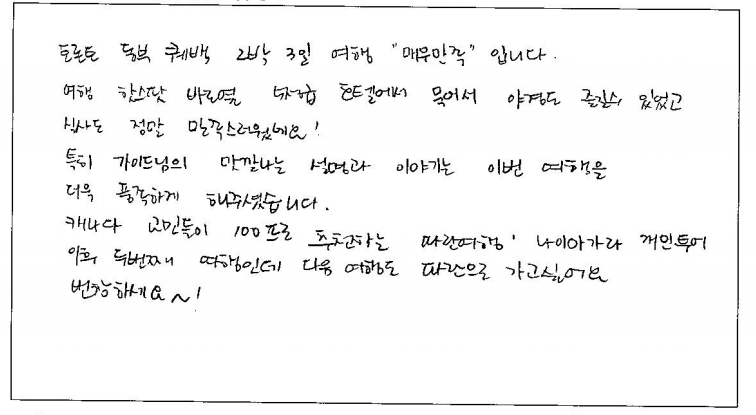 토론토 동부 퀘백 2박 3일 여행 "매우만족" 입니다.
여행 핫스팟 바로옆 호텔에서 묵어서 야경도 즐길수 있었고
식사도 정말 만족스러웠네요!
특히 가이드님의 맛깔나는 설명과 이야기는 이번 여행을
더욱 풍족하게 해주셨습니다.
캐나다 교민들이 100프로 추천하는 파란여행! 나이아가라 개인투어
이후 두번째 여행인데 다음 여행도 파란으로 가고싶어요
번창하세요~!